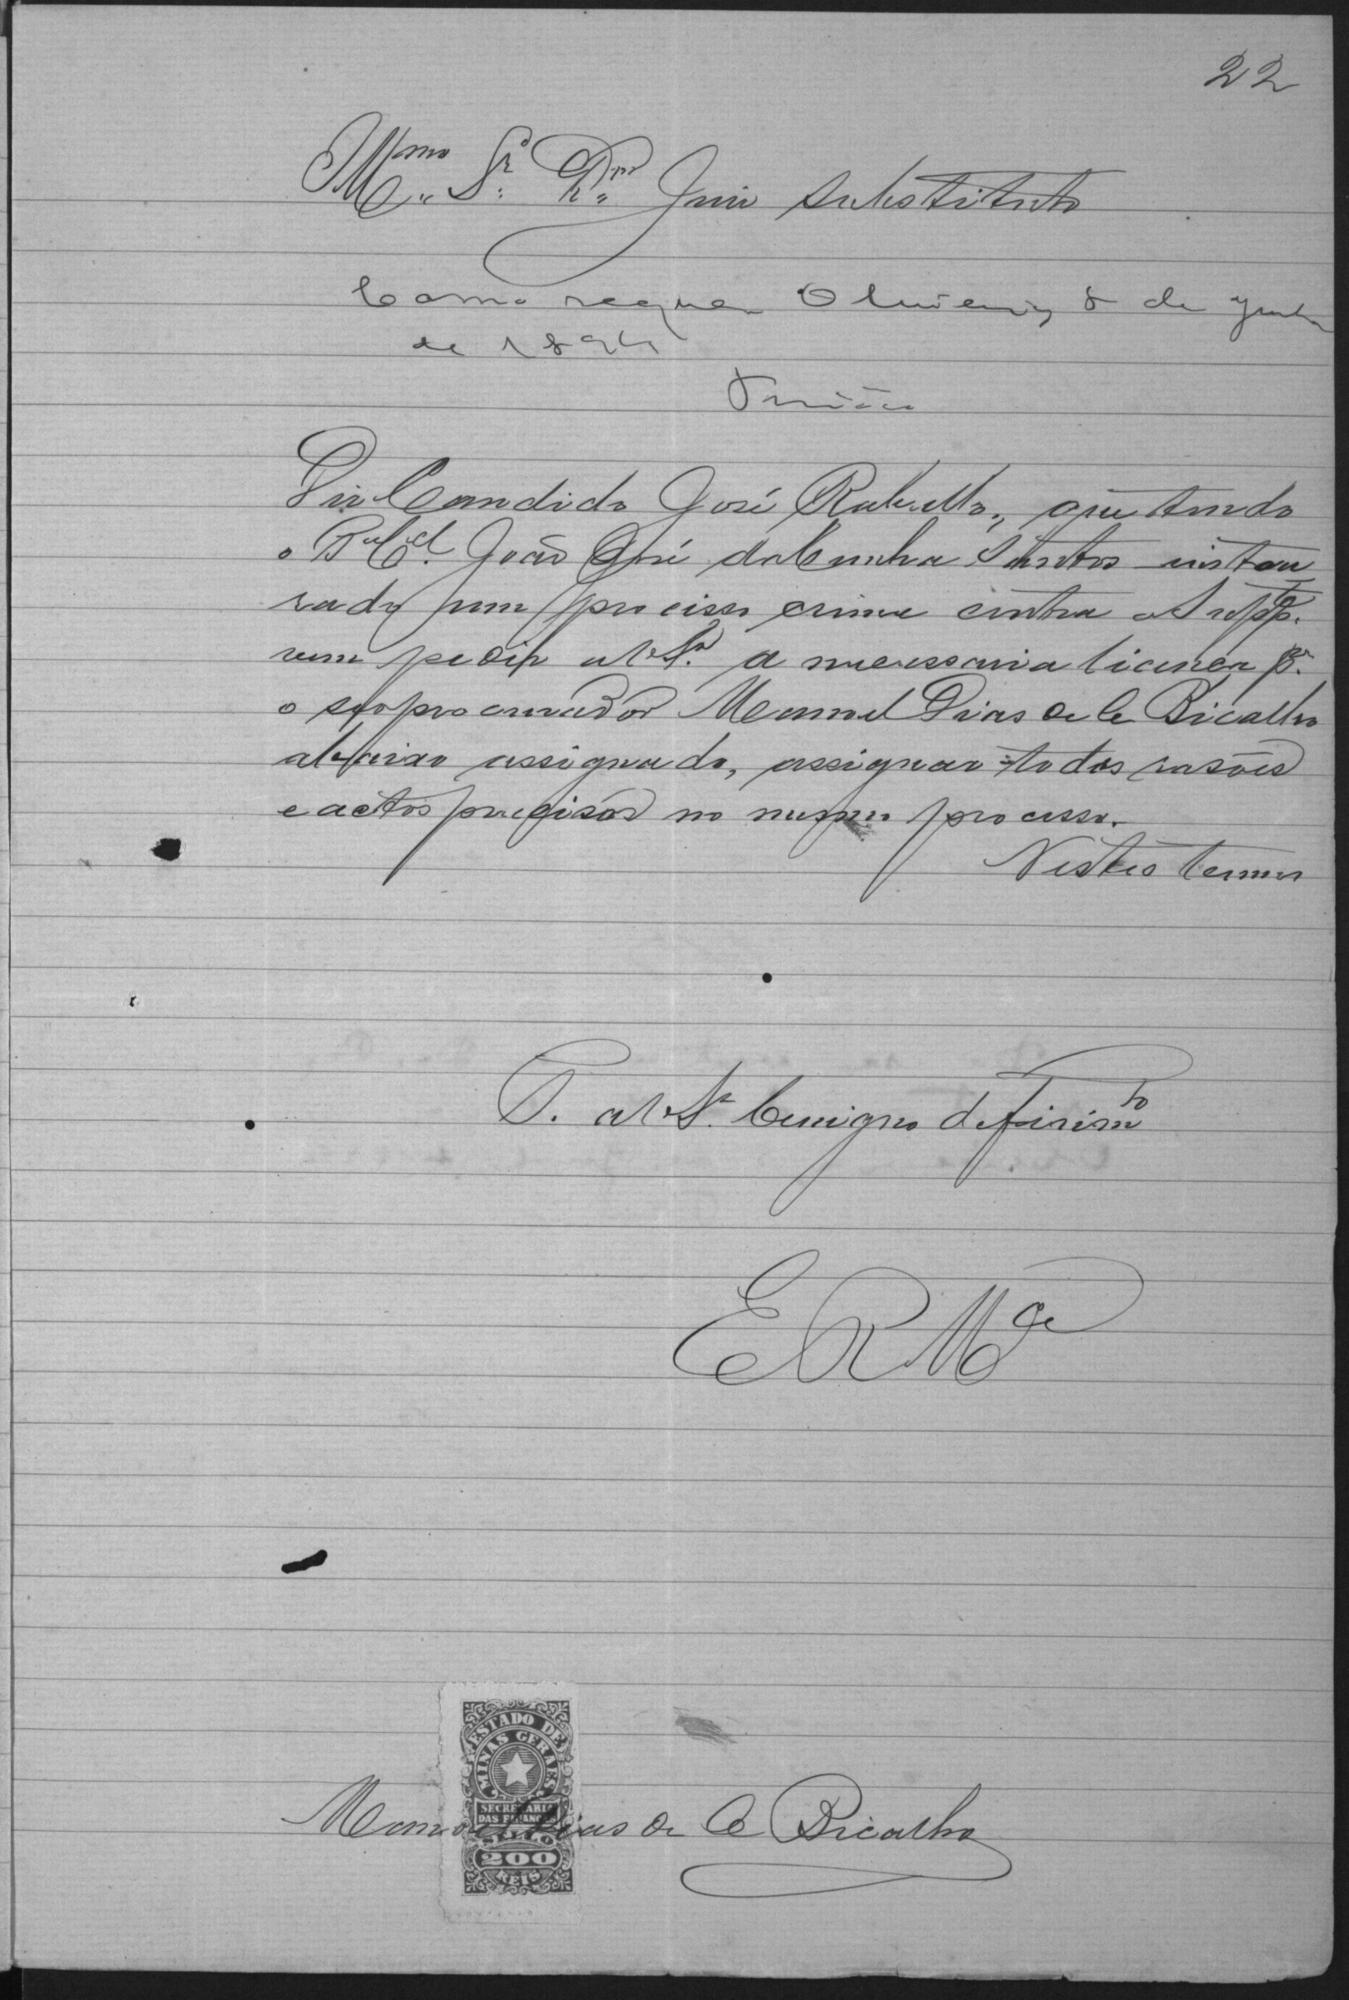 22
Mmo Sr. Dr. Juiz substituto
Como requer Oliveira, 8 de
de 1894
Diz Candido José Rabello, que tendo
o Bel. João José da Cunha Santos instau
rado um processo crime contra o Suppte.
vem pedir a V.Sa. a necessaria licença pa.
o seo procurador Manoel Dias de C Bicalho
abaixo assignado, assignar todas rasões
e actos precisos no mesmo processo.
Nestes termos
P. a V.Sa. benigno defirimto
E R Mce
ESTADO DE
MINAS GERAES
SECRETARIA
DAS FINANÇAS
SELLO
200
REIS
Manoel Dias de C Bicalho